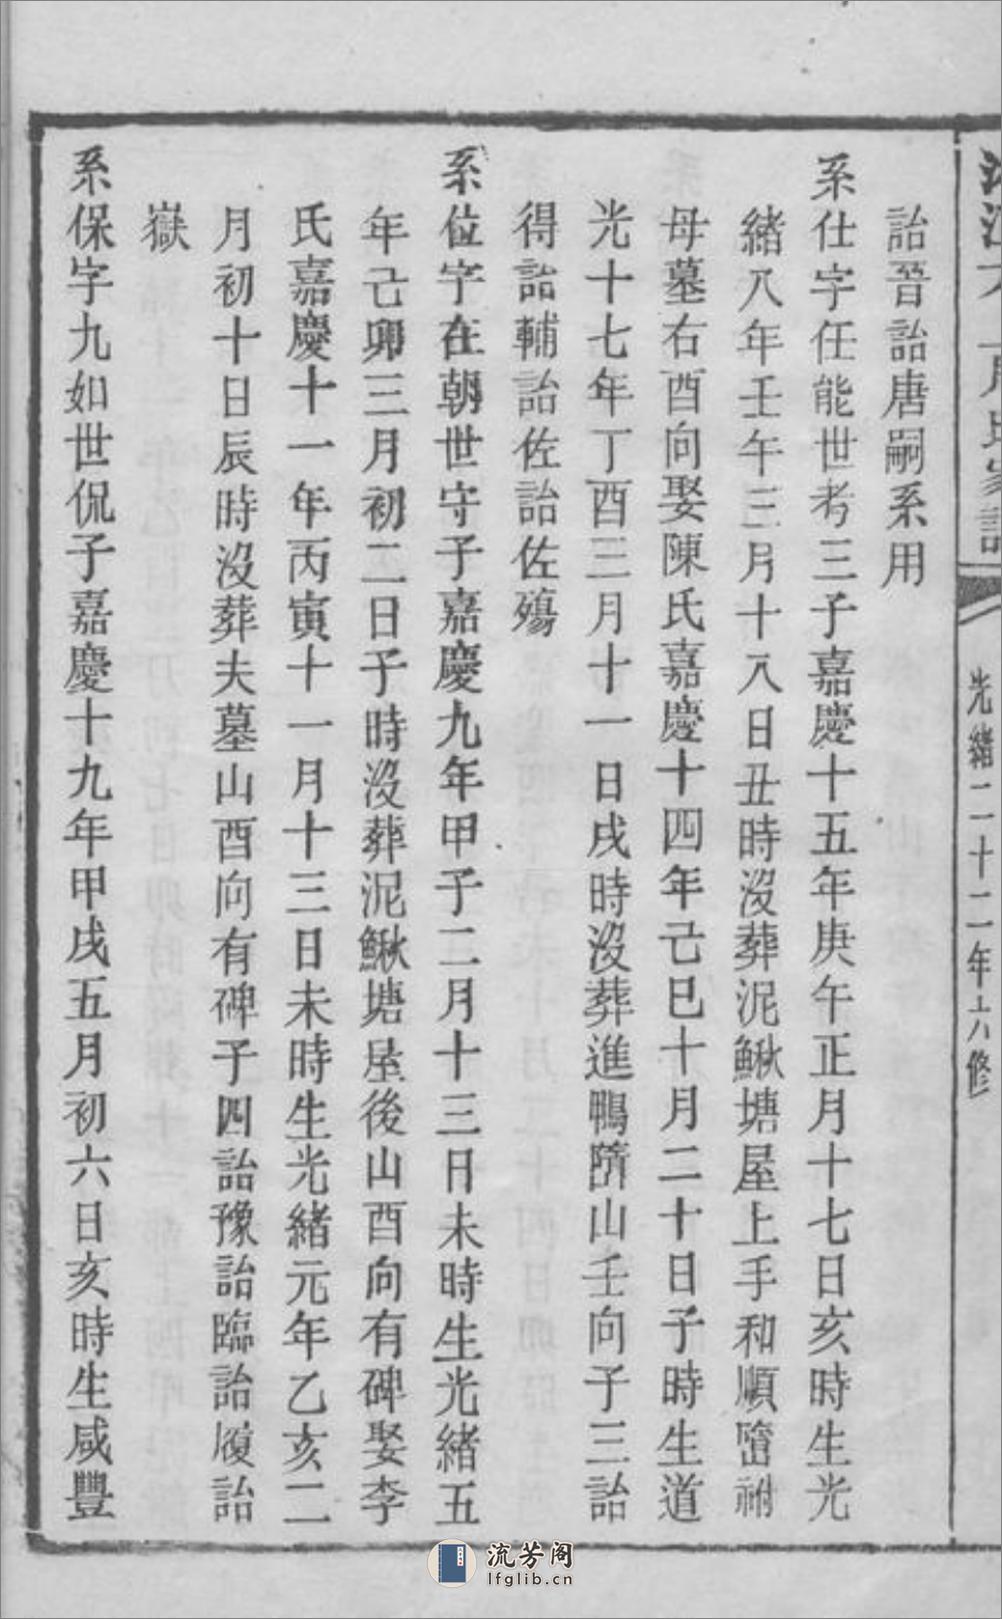 光緒二十二年六修
詒晉詒唐嗣系用
系仕字任能世考三子嘉慶十五年庚午正月十七日亥時生光
緒八年壬午三月十八日丑時沒葬泥鰍塘屋上手和順嶞祔
母墓右酉向娶陳氏嘉慶十四年己巳十月二十日子時生道
光十七年丁酉三月十一日戌時沒葬進鴨隮山壬向子三詒
得詒輔詒佐詒佐殤
系位字在朝世守子嘉慶九年甲子二月十三日未時生光緒五
年己卯三月初二日子時沒葬泥鰍塘屋後山酉向有碑娶李
氏嘉慶十一年丙寅十一月十三日未時生光緒元年乙亥二
月初十日辰時沒葬夫墓山酉向有碑子四詒豫詒臨詒履詒
嶽
系保字九如世侃子嘉慶十九年甲戌五月初六日亥時生咸豐
流芳阁
lfglib.cn